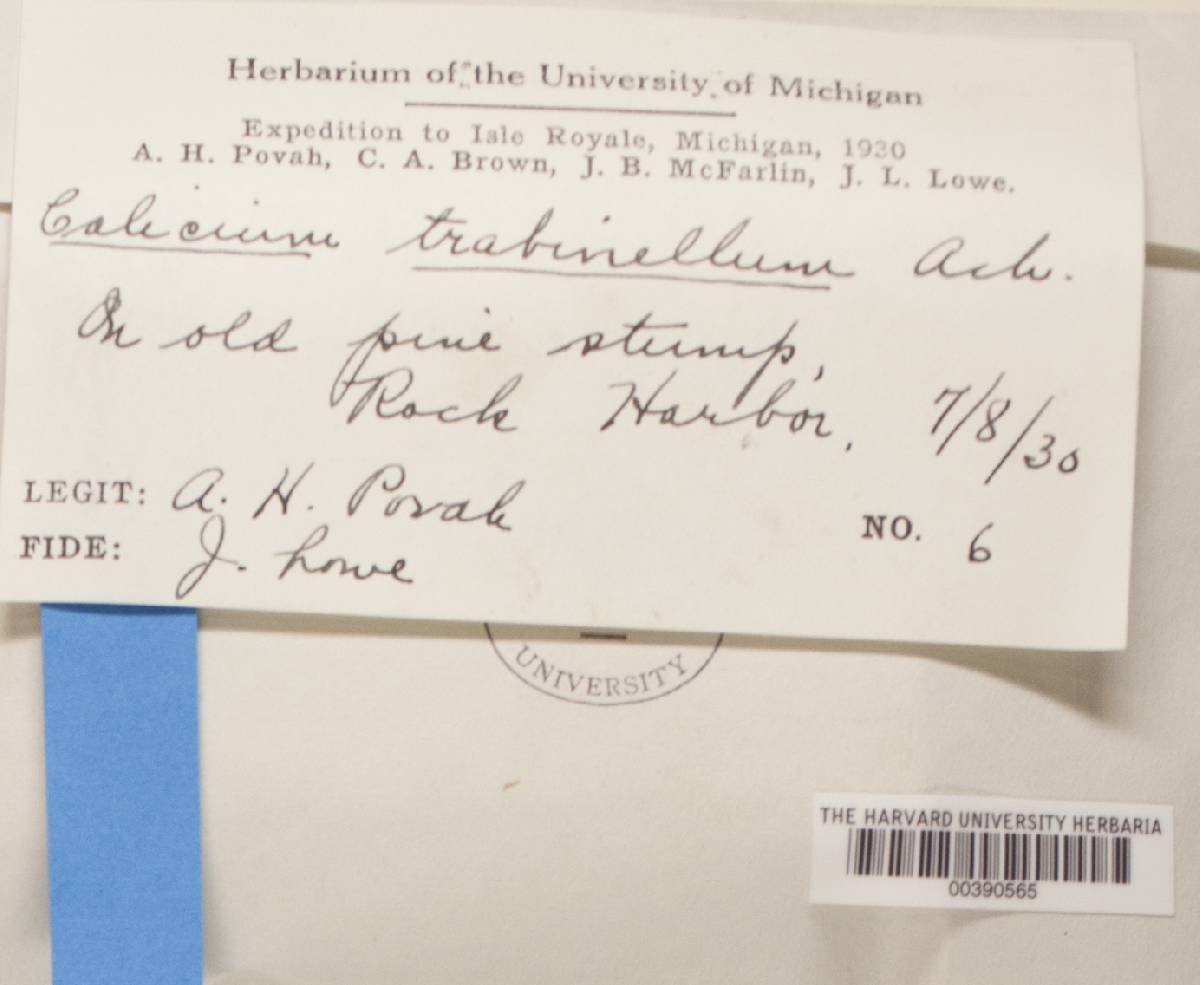 Herbarium of the University of Michigan
Expedition to Isle Royale, Michigan, 1930
A. H. Povah, C. A. Brown, J. B. McFarlin, J. L. Lowe.
Calicium trabinellum Ach.
On old pine stump,
Rock Harbor, 7/8/30
LEGIT: A. H. Povah
NO. 6
FIDE: J. Lowe
UNIVERSITY
THE HARVARD UNIVERSITY HERBARIA
00390565